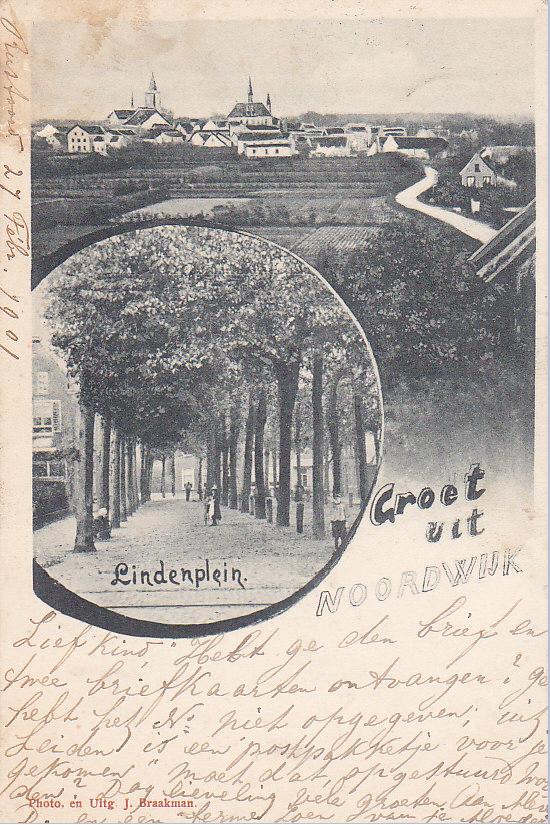 27 Febr. 1901
Lindenplein.
Groet
uit
NOORDWIJK
Lief kind Hebt ge den brief en
twee briefkaarten ontvangen? ge
hebt het No niet opgegeven; uit
Leiden is een postpakketje voor je
gekomen" moet dat opgestuurd
den? Dag lieveling vele groeten Aan
Photo. en Uitg. J. Braakman.
en een